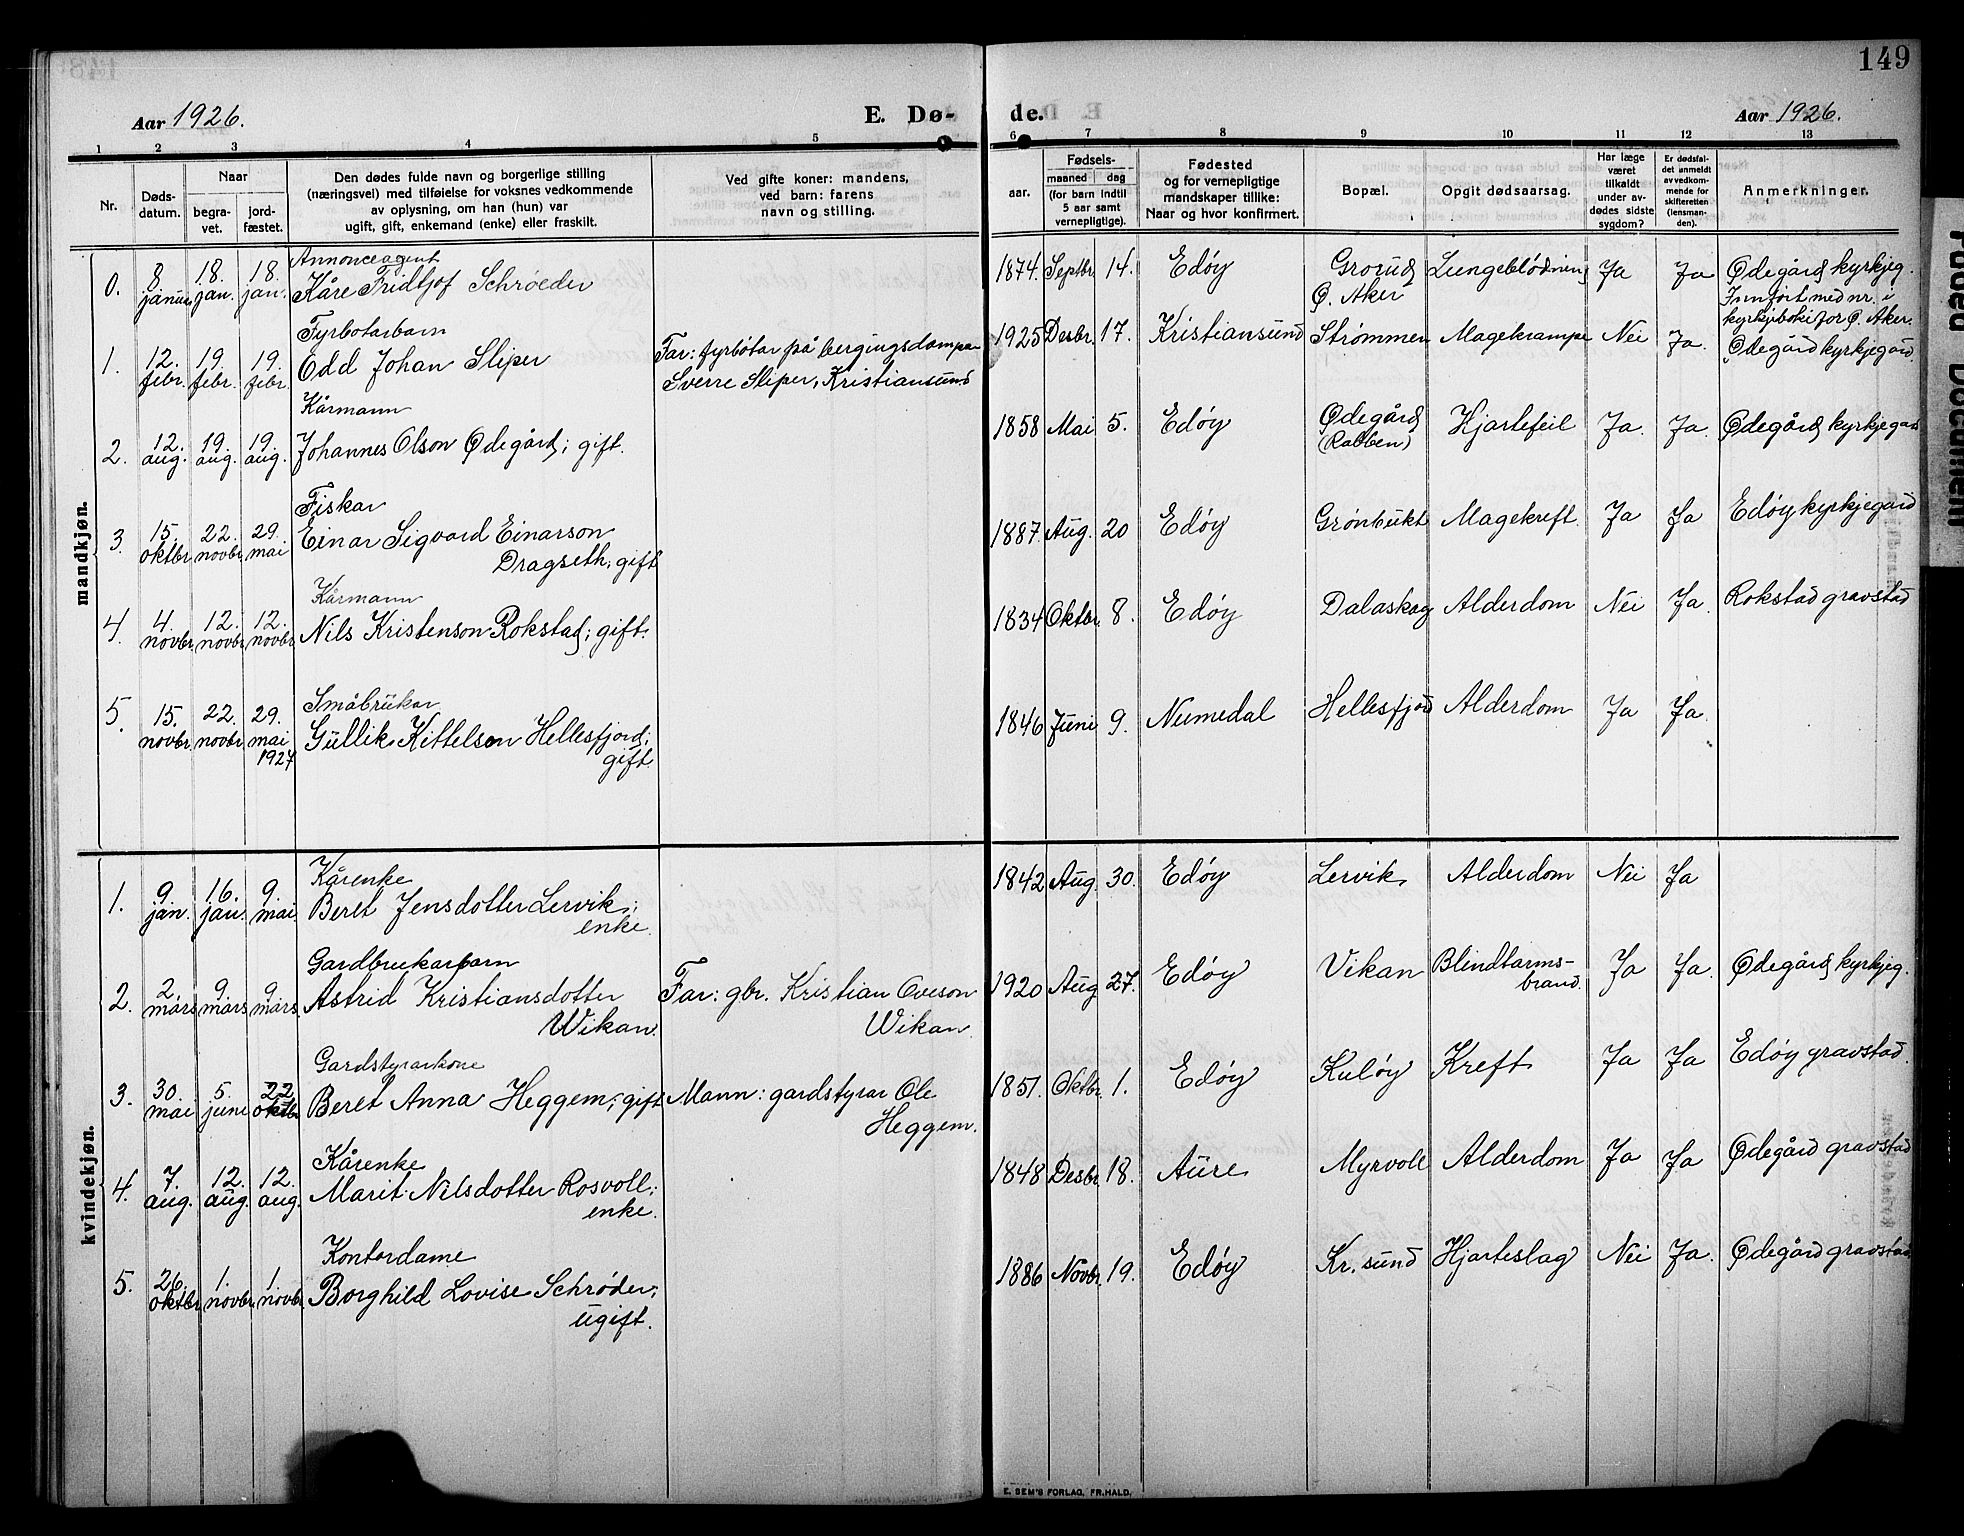 149
Aar 1926.
E. Dø-
de.
Aar 1926.
1 2 3 4 5 6 7 8 9 10 11 12 13
Nr.
Døds-
datum.
Naar
begra-
vet.
jord-
fæstet.
Den dødes fulde navn og borgerlige stilling
(næringsvei) med tilføielse for voksnes vedkommende
av oplysning, om han (hun) var
ugift, gift, enkemand (enke) eller fraskilt.
Ved gifte koner: mandens,
ved barn: farens
navn og stilling.
Fødsels-
aar.
maaned
dag
(for barn indtil
5 aar samt
vernepligtige).
Fødested
og for vernepligtige
mandskaper tillike:
Naar og hvor konfirmert.
Bopæl.
Opgit dødsaarsag.
Har læge
været
tilkaldt
under av-
dødes sidste
sygdom?
Er dødsfal-
det anmeldt
av vedkom-
mende for
skifteretten
(lensman-
den).
Anmerkninger.
mandkjøn.
0. 8 januar 18. jan. 18. jan.
Annonceagent
Kåre Fridtjof Schrøeder
1874. Septbr. 14. Edøy
Grorud
Ø. Aker
Lungeblødning Ja Ja
Ødegård kyrkjeg.
Innført med nr. i
kyrkjeboki for Ø. Aker.
1. 12. febr. 19. febr. 19. febr.
Fyrbøtarbarn
Odd Johan Sliper
Far: fyrbøtar på bergingsdampar
Sverre Sliper, Kristiansund
1925 Desbr. 17. Kristiansund Strømmen Magekrampe Nei Ja.
Ødegård kyrkjegard.
2. 12. aug. 19. aug. 19. aug.
Kårmann
Johannes Olson Ødegård; gift.
1858 Mai 5. Edøy
Ødegård
(Rabben)
Hjartefeil Ja. Ja. Ødegård kyrkjegard
3. 15. oktbr 22. novbr 29. mai
Fiskar
Einar Sigvard Einarson
Dragseth; gift
1887. Aug. 20 Edøy Grønbukt Magekreft. Ja Ja Edøy kyrkjegard
4. 4. novbr. 12. novbr 12. novbr
Kårmann
Nils Kristenson Rokstad; gift.
1834 Oktbr. 8. Edøy Dalaskog Alderdom Nei Ja. Rokstad gravstad
5. 15. novbr 22. novbr 29. mai 1927
Småbrukar
Gullik Kittelson Hellesfjord;
gift.
1846 Juni 9. Numedal Hellesfjord Alderdom Ja Ja.
kvindekjøn.
1. 9 jan. 16. jan. 9 mai.
Kårenke
Beret Jensdotter Lervik;
enke.
1842 Aug. 30. Edøy Lervik Alderdom Nei Ja
2. 2 mars 9 mars 9 mars.
Gardbrukarbarn
Astrid Kristiansdotter
Wikan.
Far: gbr. Kristian Oveson
Wikan.
1920 Aug 27. Edøy Vikan
Blindtarms-
brand.
Ja Ja. Ødegård kyrkjeg.
3. 30. mai 5. juni 22. oktbr
Gardstyrarkone
Beret Anna Heggem; gift
Mann: gardstyrar Ole
Heggem.
1851. Oktbr. 1. Edøy Kuløy Kreft Ja Ja Edøy gravstad.
4. 7. aug. 12. aug. 12. aug.
Kårenke
Marit Nilsdotter Rosvoll;
enke.
1848 Desbr. 18. Aure Myrvoll Alderdom Ja Ja Ødegård gravstad
5. 26. oktbr 1. novbr. 1. novbr.
Kontordame
Borghild Lovise Schrøder;
ugift.
1886 Novbr. 19. Edøy Kr. sund Hjarteslag Nei Ja. Ødegård gravstad
E. SEM'S FORLAG, FR.HALD.
Faded Document